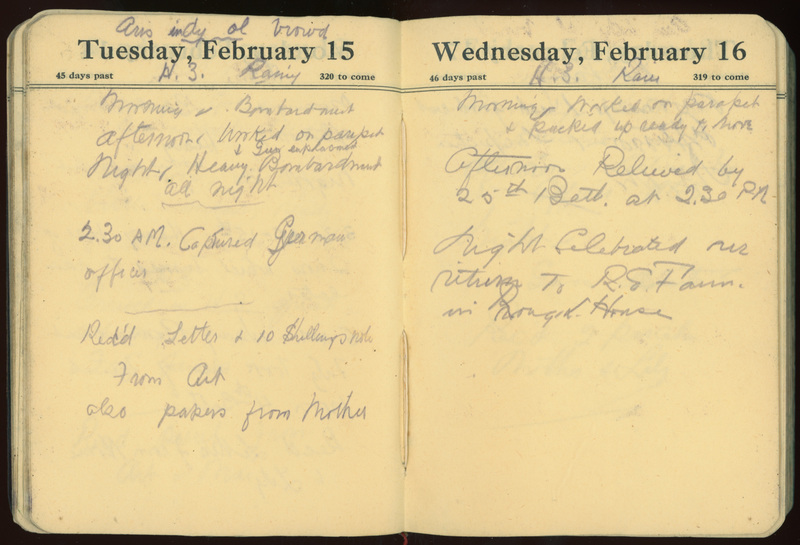 Tuesday, February 15
45 days past 320 to come
H. 3. Rainy
Morning Bombardment
Afternoon, Worked on parapet
&
Night, Heavy Bombardment
all night
2.30 A.M. Captured German
officer
Rec'd Letter & 10 Shillings note
From Art
also papers from Mother
Wednesday, February 16
46 days past 319 to come
H. 3. Rain
Morning, Worked on parapet
& Packed up ready to move
Afternoon Relieved by
25th Batt. at 2.30 P.M.
Night Celebrated our
return To R.E. Farm.
in House